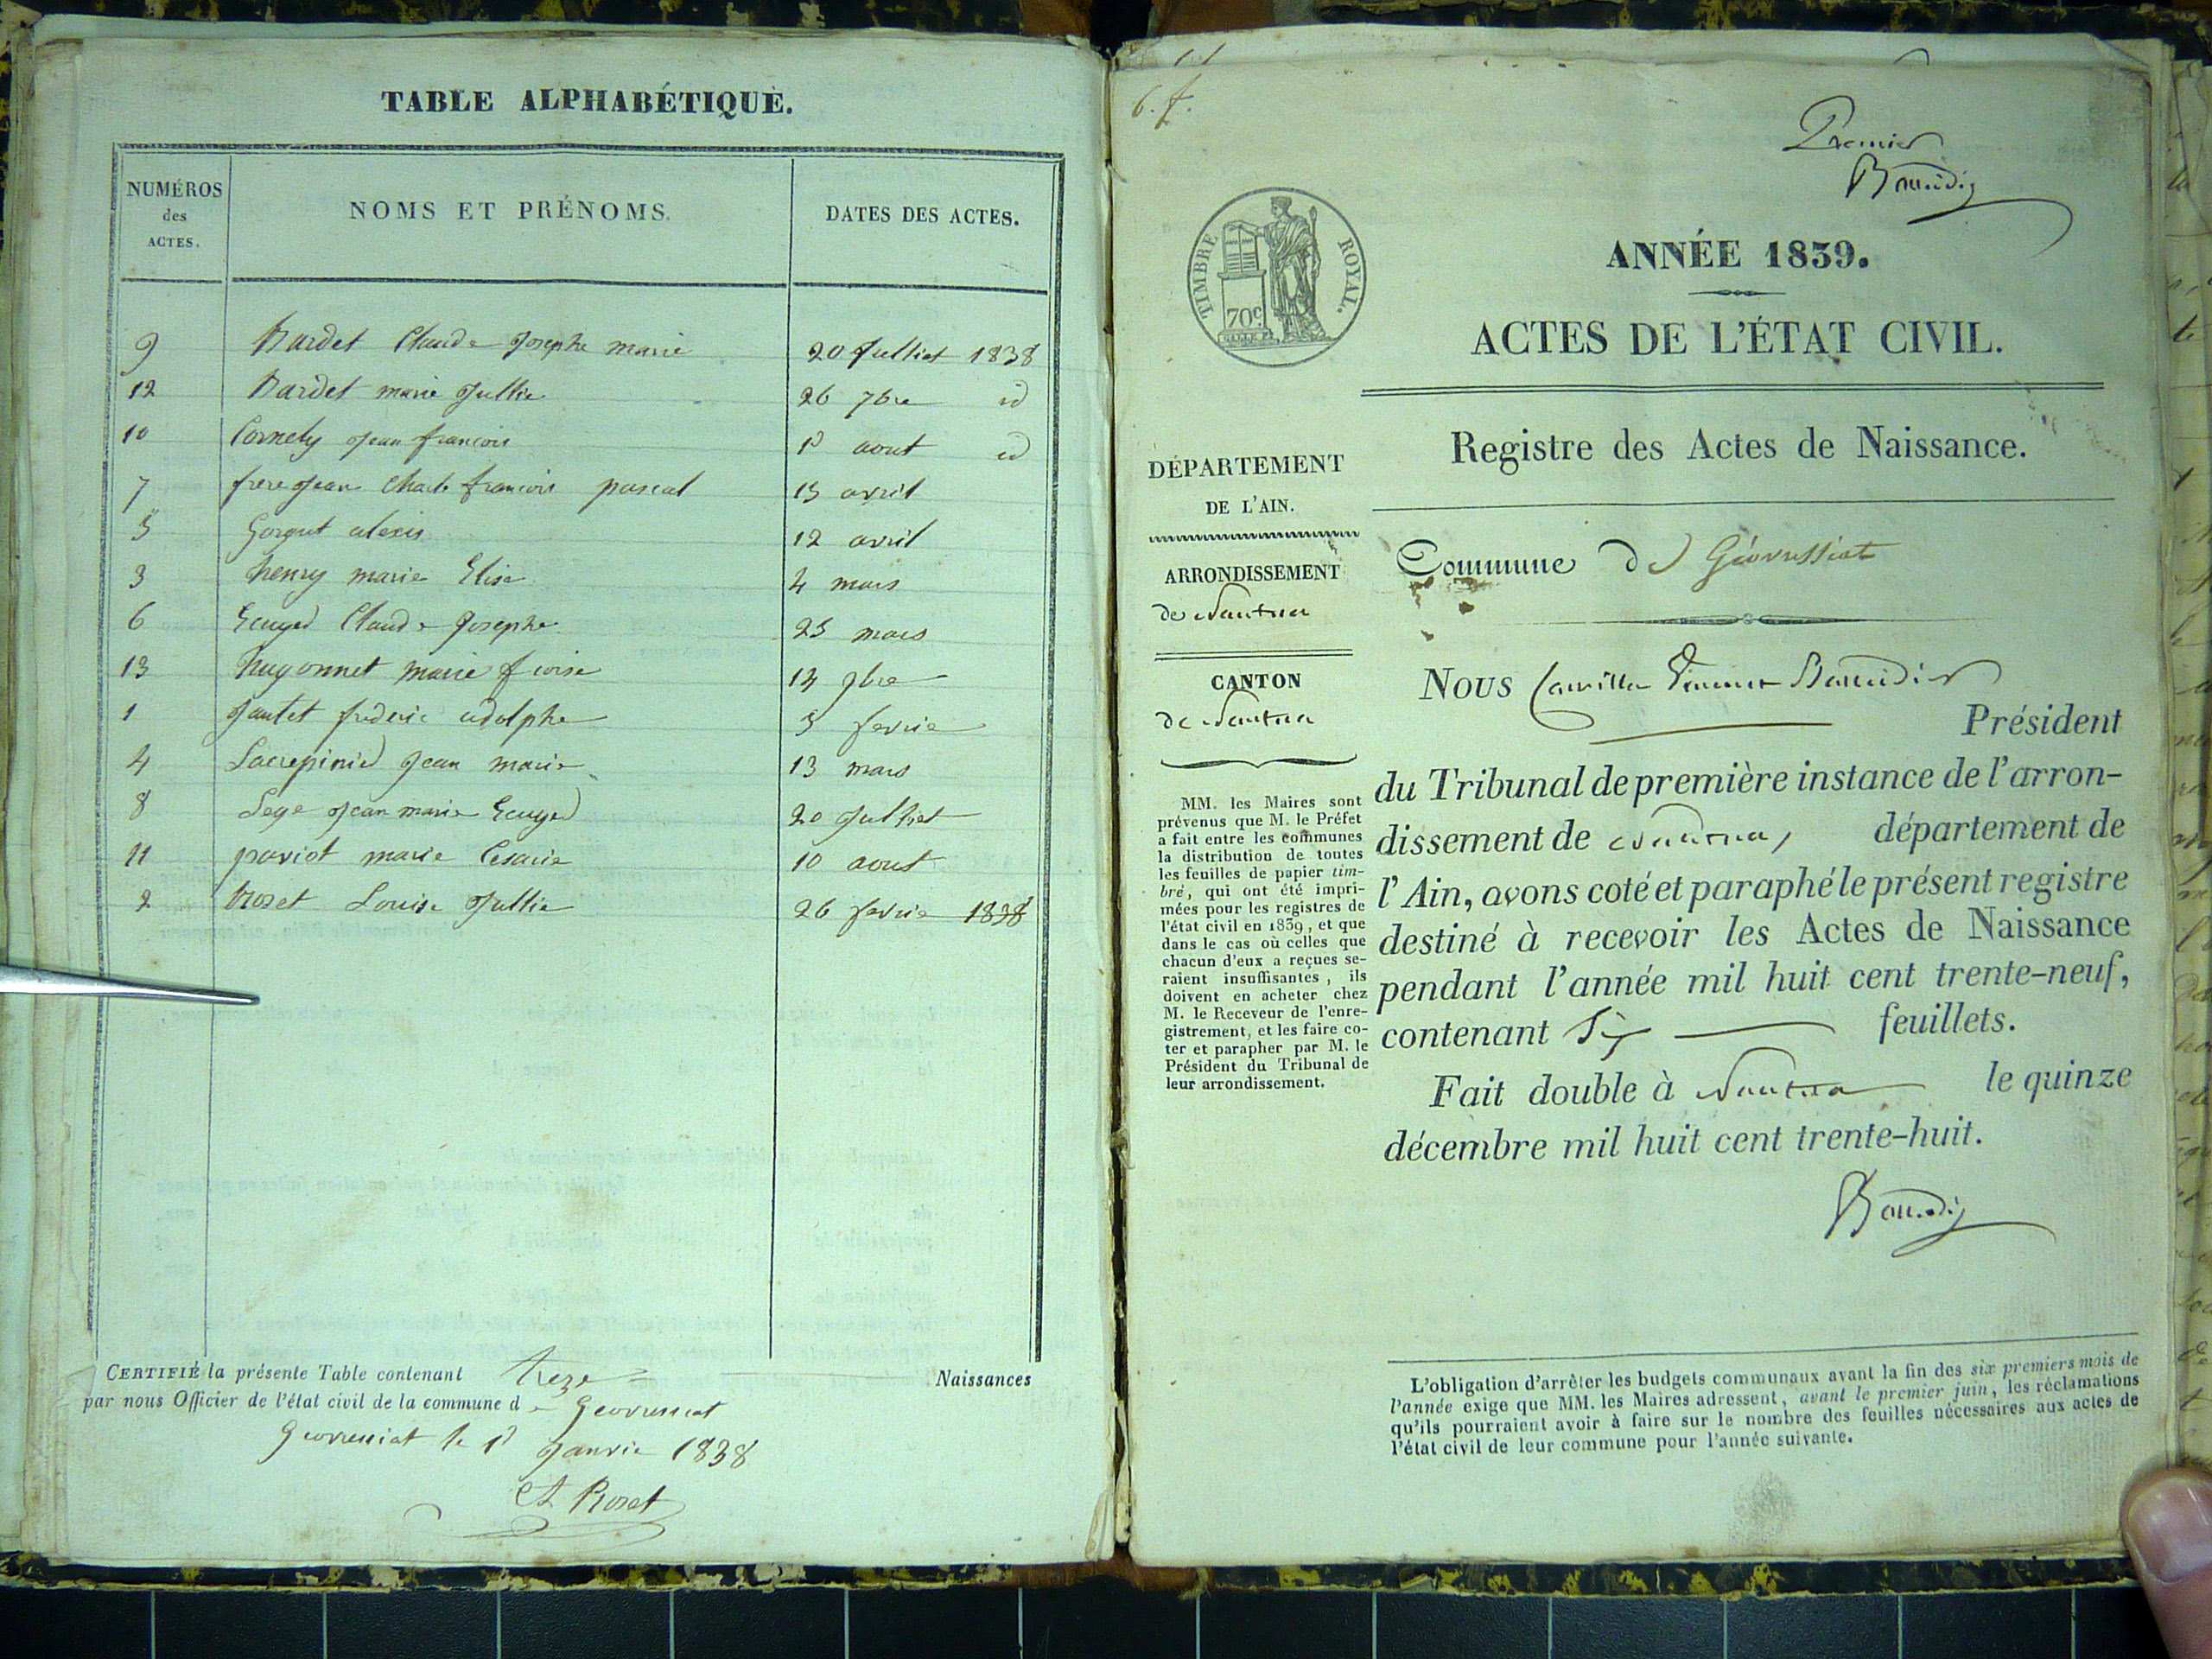 TABLE ALPHABÉTIQUE.
NUMÉROS des ACTES. NOMS ET PRÉNOMS. DATES DES ACTES.
9 Bardet Claude Josephe marie 20 Julliet 1838
12 Bardet marie Jullie 26 7bre id
10 Cornely Jean francois 1er aout id
7 frerejean Charle francois pascal 15 avril
5 Gorgut alexis 12 avril
3 henry marie Elise 4 mars
6 Claude Josephe 25 mars
13 hugonnet marie fcoise 14 9bre
1 Jantet frederic adolphe 5 fevrie
4 Lacrepinied Jean marie 13 mars
8 Jean marie 20 Julliet
11 paviot marie Cesarie 10 aout
2 Rozet Louise Jullie 26 fevrie 1838
CERTIFIÉ la présente Table contenant treze Naissances
par nous Officier de l'état civil de la commune de Geovressiat
Geovressiat le 1er Janvie 1838
Rozet
6. f.
Premier
Baudin
TIMBRE ROYAL.
70c
ANNÉE 1839.
ACTES DE L'ÉTAT CIVIL.
Registre des Actes de Naissance.
DÉPARTEMENT
DE L'AIN.
ARRONDISSEMENT
de Nantua
CANTON
de Nantua
MM. les Maires sont
prévenus que M. le Préfet
a fait entre les communes
la distribution de toutes
les feuilles de papier tim-
bré, qui ont été impri-
mées pour les registres de
l'état civil en 1839, et que
dans le cas où celles que
chacun d'eux a reçues se-
raient insuffisantes, ils
doivent en acheter chez
M. le Receveur de l'enre-
gistrement, et les faire co-
ter et parapher par M. le
Président du Tribunal de
leur arrondissement.
Commune de Géovressiat
Nous Camille Vincent
Président
du Tribunal de première instance de l'arron-
dissement de Nantua, département de
l'Ain, avons coté et paraphé le présent registre
destiné à recevoir les Actes de Naissance
pendant l'année mil huit cent trente-neuf,
contenant Six feuillets.
Fait double à Nantua le quinze
décembre mil huit cent trente-huit.
L'obligation d'arrêter les budgets communaux avant la fin des six premiers mois de
l'année exige que MM. les Maires adressent, avant le premier juin, les réclamations
qu'ils pourraient avoir à faire sur le nombre des feuilles nécessaires aux actes de
l'état civil de leur commune pour l'année suivante.